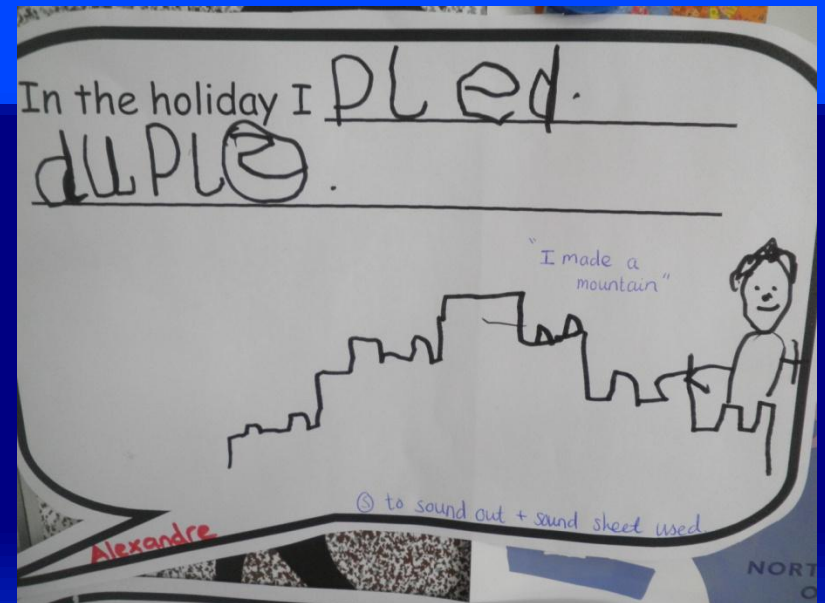 In the holiday I pl ed.
duple.
"I made a
mountain"
Ⓢ to sound out + sound sheet used
Alexandre
NORT
O